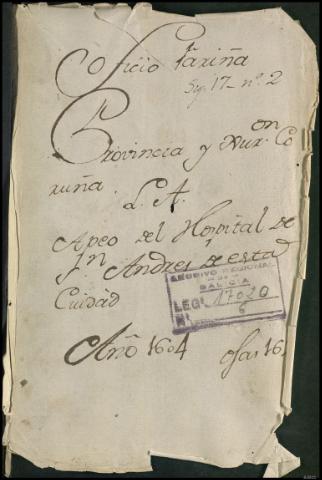 Oficio Fariña
Sig. 17 - nº. 2
Provincia y Jur.on Co
ruña.
L. A.
Apeo del Hospital de
Sn. Andres de esta
Ciudad
ARCHIVO REGIONAL
DE
GALICIA
LEG. 17020
N. 6
Año 1604 ofas 16